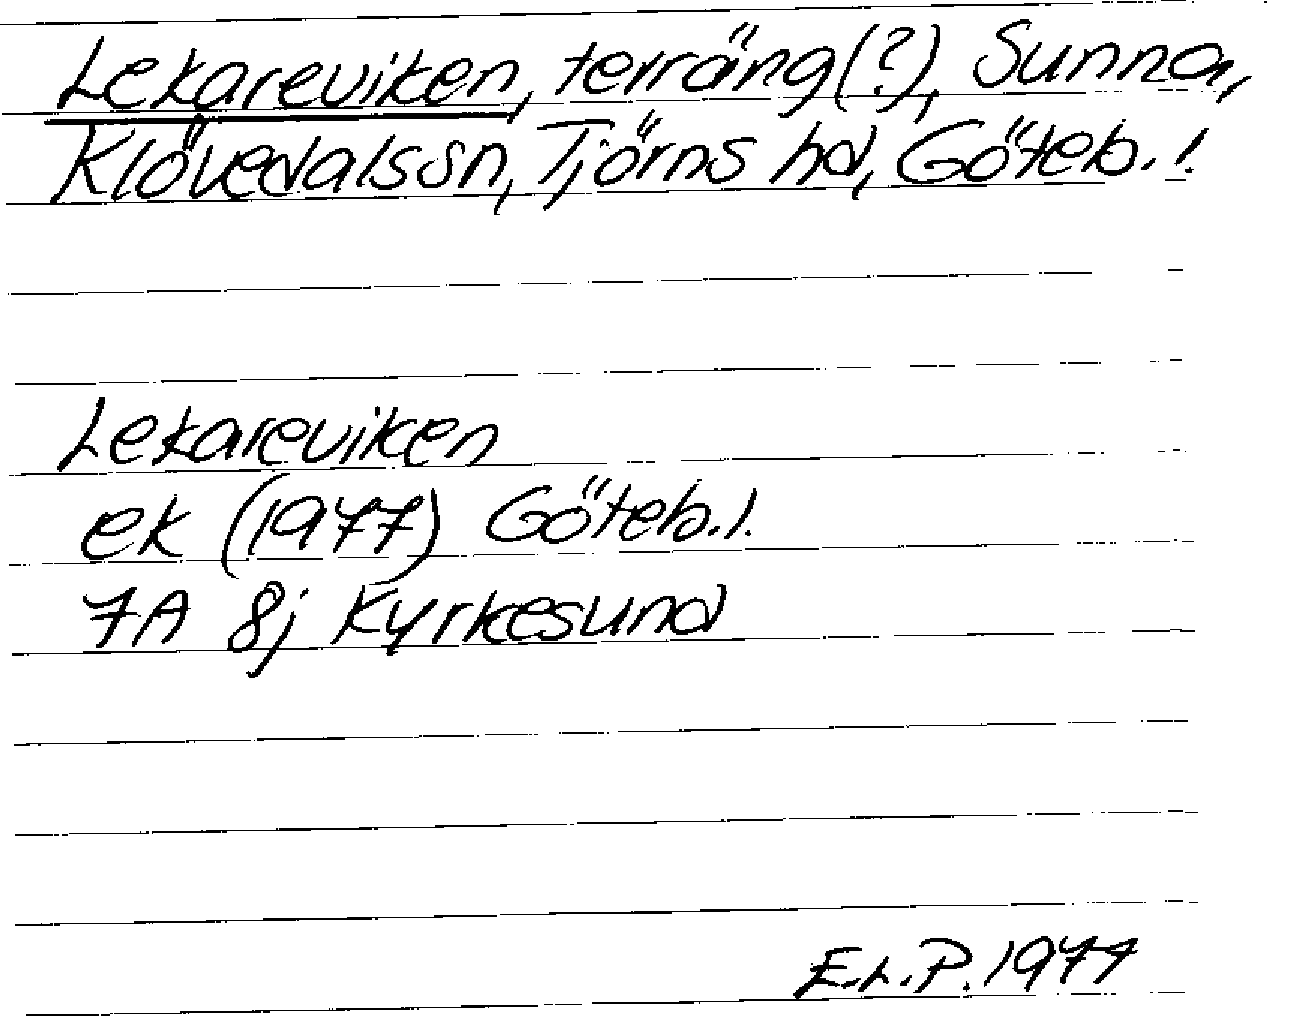 Lekareviken, terräng(?), Sunna,
Klövedals sn, Tjörns hd, Göteb. l.
Lekareviken
ek (1977) Göteb. l.
7A 8j Kyrkesund
E.L.P. 1977